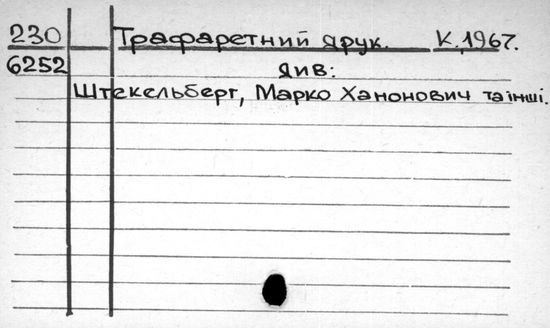 230 Трафаретний друк. К.1967.
6252 Див:
Штекельберг, Марко Ханонович та інші.